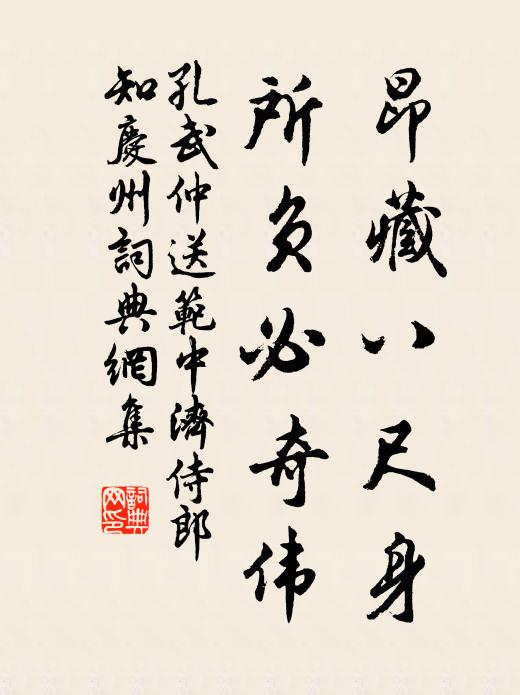 昂藏八尺身
所负必奇伟
孔武仲送範中濟侍郎
知慶州詞典網集
詞典
网印